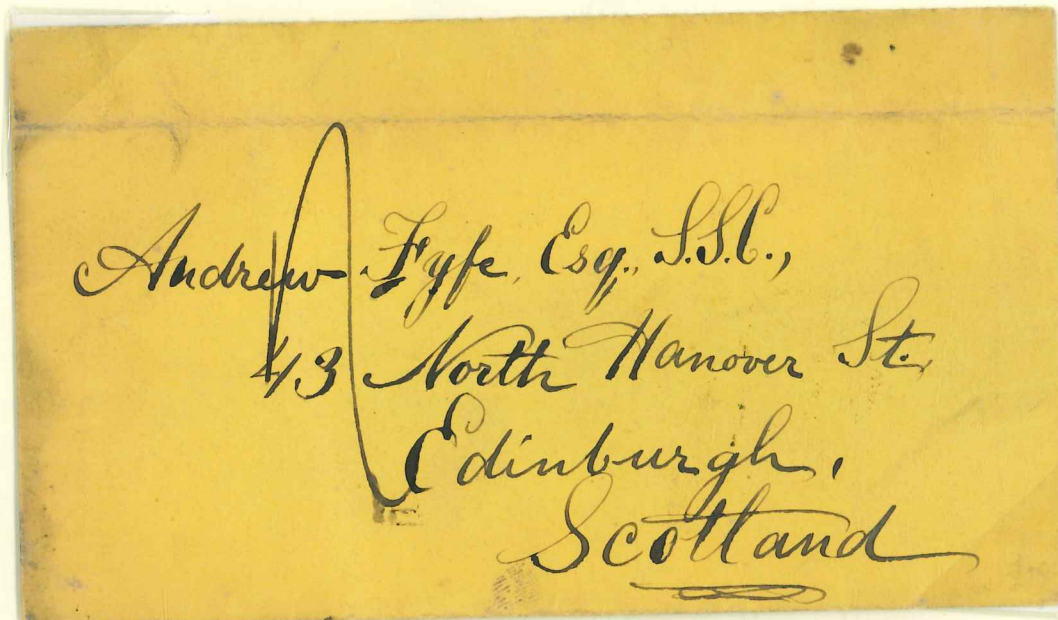 Andrew Fyfe, Esq., S.S.C.,
43 North Hanover St.
Edinburgh,
Scotland